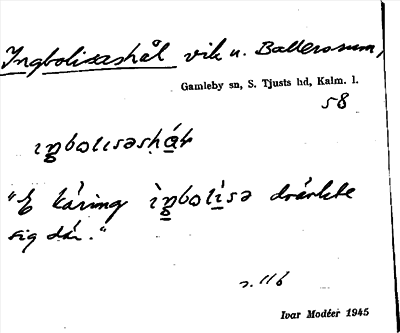 Ingbolisashål vik u. Ballersum,
Gamleby sn, S. Tjusts hd, Kalm. l.
58
ıŋbolısəshål
"E käring ìŋbolísə dränkte
sig där."
s. 116
Ivar Modéer 1945